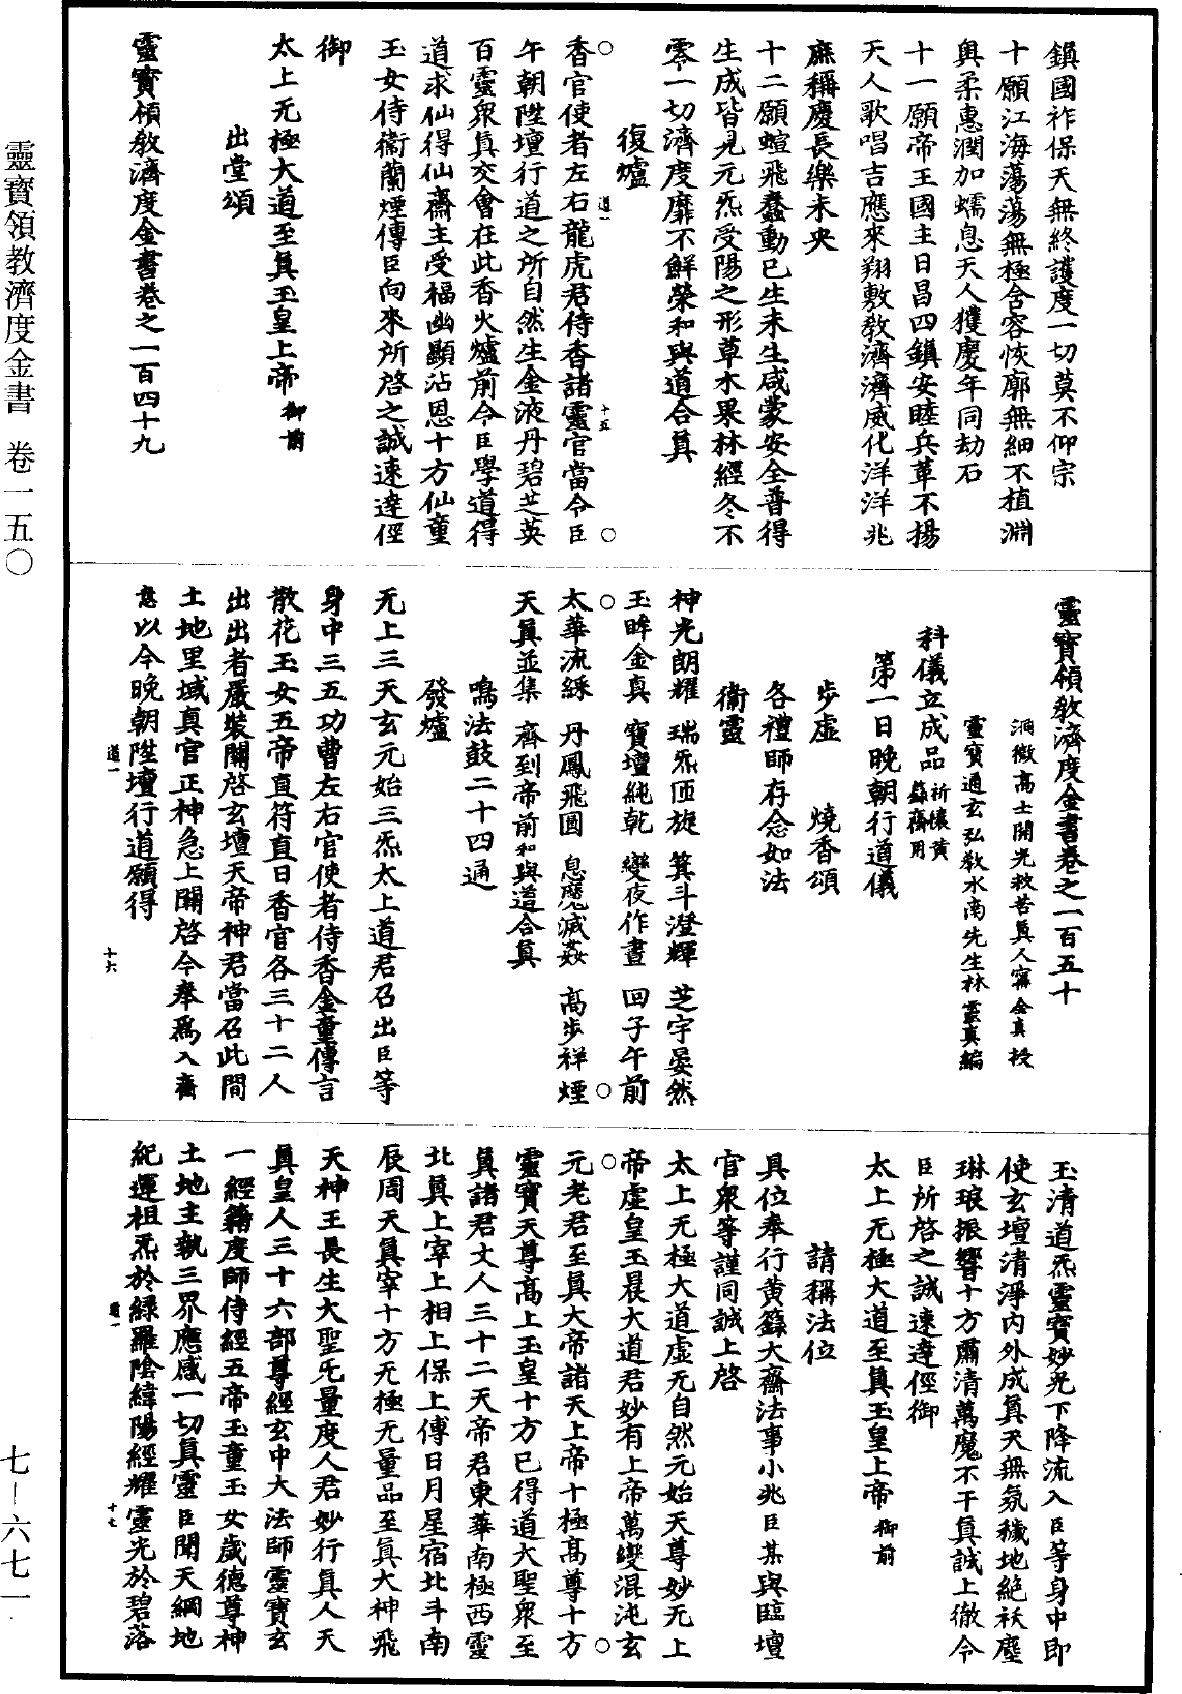 鎮國祚保天無終護度一切莫不仰宗
十願江海蕩蕩無極含容恢廓無細不植淵
輿柔惠潤加蠕息天人獲慶年同劫石
十一願帝王國主日昌四鎮安睦兵革不揚
天人歌唱吉應來翔敷教濟濟威化洋洋兆
庶稱慶長樂未央
十二願蝖飛蠢動已生未生咸蒙安全普得
生成皆見元炁受陽之形草木果林經冬不
零一切濟度靡不鮮榮和與道合真
復爐
香官使者左右龍虎君侍香諸靈官當令臣
道一 十五
午朝陞壇行道之所自然生金液丹碧芝英
百靈眾真交會在此香火爐前令臣學道得
道求仙得仙齋主受福幽顯沾恩十方仙童
玉女侍衛蘭煙傳臣向來所啓之誠速達徑
御
太上无極大道至真玉皇上帝御前
出堂頌
靈寶領教濟度金書卷之一百四十九
靈寶領教濟度金書卷之一百五十
洞微高士開光救苦真人甯全真授
靈寶通玄弘教水南先生林靈真編
科儀立成品祈禳黃籙齋用
第一日晚朝行道儀
步虛 燒香頌
各禮師存念如法
衛靈
神光朗耀 瑞炁匝旋 箕斗澄輝 芝宇晏然
玉眸金真 寶壇純乾 變夜作晝 回子午前
太華流綵 丹鳳飛圓 息魔滅姦 高步祥煙
天真並集 齊到帝前和與道合真
鳴法鼓二十四通
發爐
无上三天玄元始三炁太上道君召出臣等
身中三五功曹左右官使者侍香金童傳言
散花玉女五帝直符直日香官各三十二人
出出者嚴裝關啓玄壇天帝神君當召此間
土地里域真官正神急上關啓今奉為入齋
意以今晚朝陞壇行道願得
道一 十六
玉清道炁靈寶妙光下降流入臣等身中即
使玄壇清淨內外成真天無氛穢地絕祅塵
琳琅振響十方肅清萬魔不干真誠上徹令
臣所啓之誠速達徑御
太上无極大道至真玉皇上帝御前
請稱法位
具位奉行黃籙大齋法事小兆臣某與臨壇
官眾等謹同誠上啓
太上无極大道虛无自然元始天尊妙无上
帝虛皇玉晨大道君妙有上帝萬變混沌玄
元老君至真大帝諸天上帝十極高尊十方
靈寶天尊高上玉皇十方已得道大聖眾至
真諸君丈人三十二天帝君東華南極西靈
北真上宰上相上保上傅日月星宿北斗南
辰周天真宰十方无極无量品至真大神飛
天神王長生大聖无量度人君妙行真人天
真皇人三十六部尊經玄中大法師靈寶玄
一經籍度師侍經五帝玉童玉女歲德尊神
土地主執三界應感一切真靈臣聞天綱地
紀運祖炁於綠羅陰緯陽經耀靈光於碧落
道一 十七
靈寶領教濟度金書 卷一五〇
七-六七一